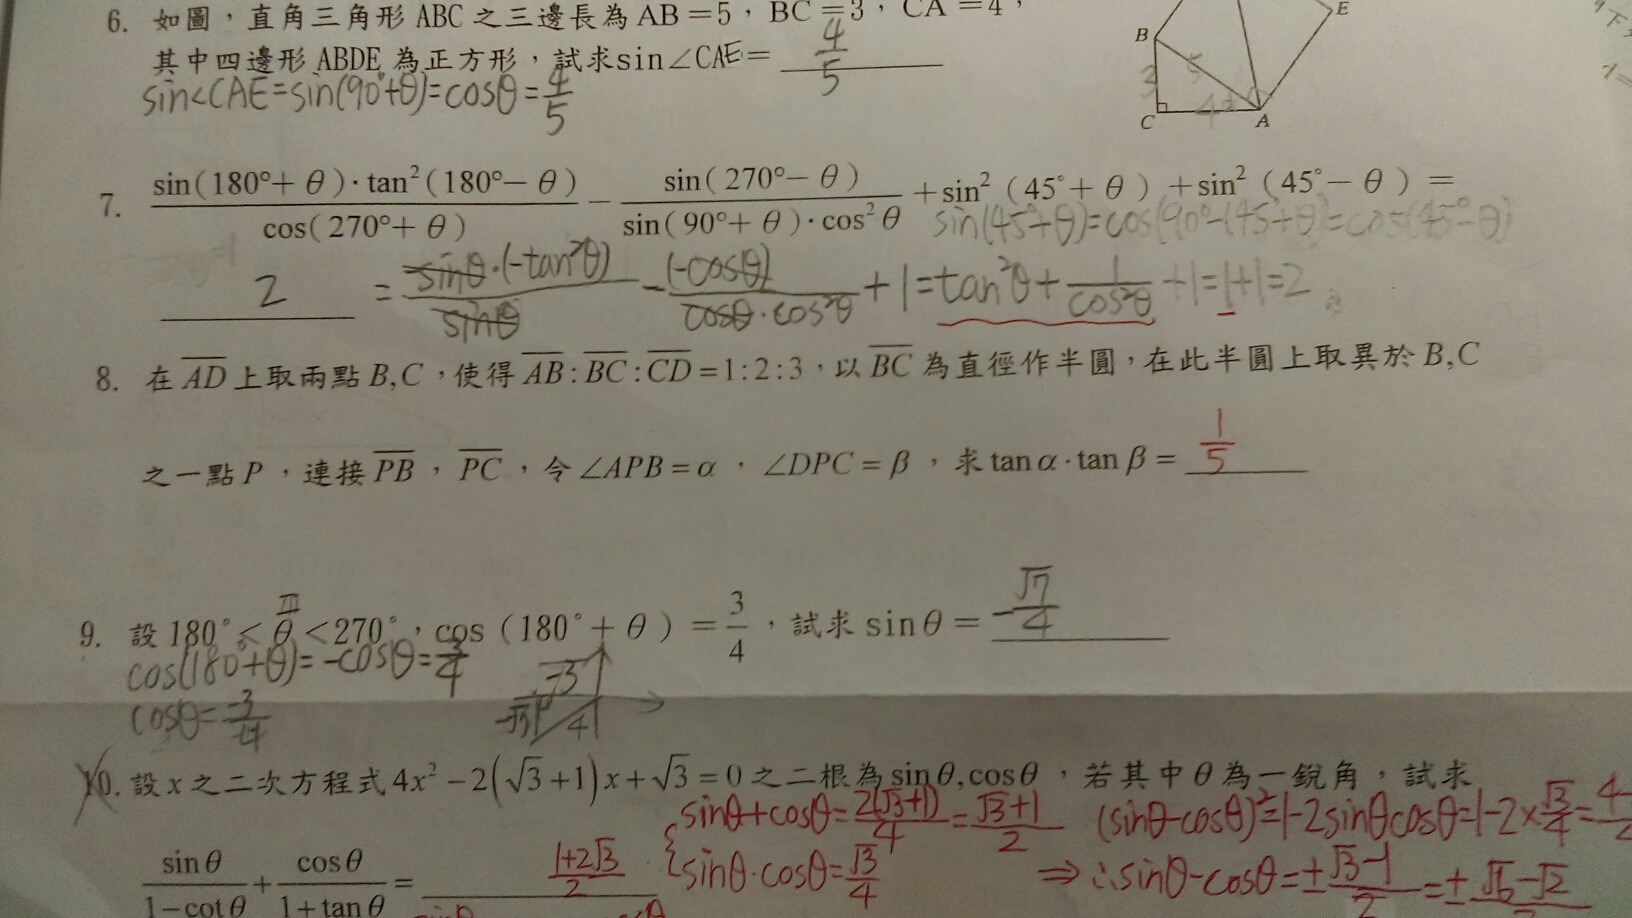 6. 如圖，直角三角形 ABC 之三邊長為 AB=5，BC=3，CA=4，
其中四邊形 ABDE 為正方形，試求sin∠CAE= 4/5
sin<CAE=sin(90°+θ)=cosθ=4/5
B E C A
3 5 4
7. sin(180°+θ)·tan²(180°-θ)/cos(270°+θ) - sin(270°-θ)/sin(90°+θ)·cos²θ +sin²(45°+θ)+sin²(45°-θ)=
sin(45°+θ)=cos(90°-(45°+θ)=cos(45°-θ)
2 = sinθ·(-tan²θ)/sinθ - (-cosθ)/cosθ·cos²θ +1=tan²θ+1/cos²θ+1=1+1=2
8. 在 AD 上取兩點 B,C，使得 AB:BC:CD=1:2:3，以 BC 為直徑作半圓，在此半圓上取異於 B,C
之一點 P，連接 PB，PC，令∠APB=α，∠DPC=β，求 tanα·tanβ= 1/5
III
9. 設 180°<θ<270°，cos(180°+θ)=3/4，試求 sinθ= -√7/4
cos(180°+θ)=-cosθ=3/4
cosθ=-3/4
-3 4
10. 設 x 之二次方程式 4x²-2(√3+1)x+√3=0 之二根為 sinθ,cosθ，若其中 θ 為一銳角，試求
sinθ+cosθ=2(√3+1)/4=√3+1/2 (sinθ-cosθ)²=1-2sinθcosθ=1-2×√3/4=4-
sinθ/1-cotθ+cosθ/1+tanθ= 1+2√3/2 sinθ·cosθ=√3/4 ⇒∴sinθ-cosθ=±√3-1/2=±√6-√2